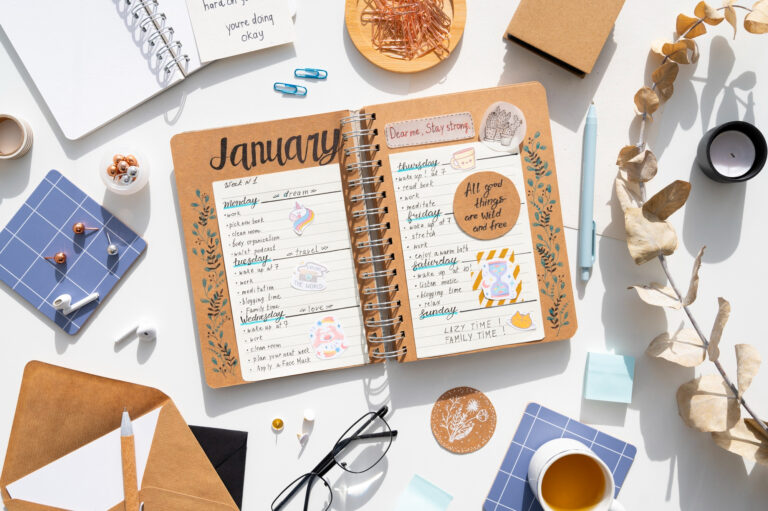 hard on y
you're doing
okay
January
Week №1
monday
dream
• work
• pick new book
• clean room
• body organization
• waist podcast
tuesday
travel
• wake up at 7
• work
• meditation
• blogging time
• Family time
THE WORLD
Wednesday
love
• wake up at 7
• work
• clean room
• plan your next week
• Apply a Face Mask
Dear me, Stay strong.
thursday
• wake up! at 7
• read book
• work
• meditate
friday
• wake up at 7
• stretch
• work
• enjoy a warm bath
All good
things
are wild
and free
saturday
• wake up at 10!
• listen music
• blogging time
• relax
Sunday
LAZY TIME!
FAMILY TIME!